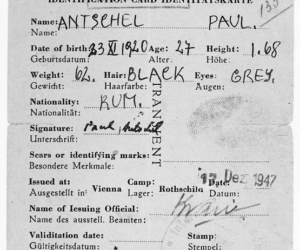 IDENTIFICATION CARD IDENTITÄTSKARTE
Name: ANTSCHEL PAUL.
Name:
Date of birth: 23 XI 1920 Age: 27 Height: 1.68
Geburtsdatum: Alter: Höhe:
Weight: 62. Hair: BLACK Eyes: GREY.
Gewicht: Haarfarbe: Augen:
TRANSIENT
Nationality: RUM.
Nationalität:
Signature: Paul
Unterschrift:
Scars or identifying marks:
Besondere Merkmale:
Issued at: Vienna Camp: Rothschild Date: 17 Dez. 1947
Ausgestellt in: Lager: Datum:
Name of Issuing Official:
Name des ausstell. Beamten:
Validitation date: Stamp:
Gültigkeitsdatum: Stempel: